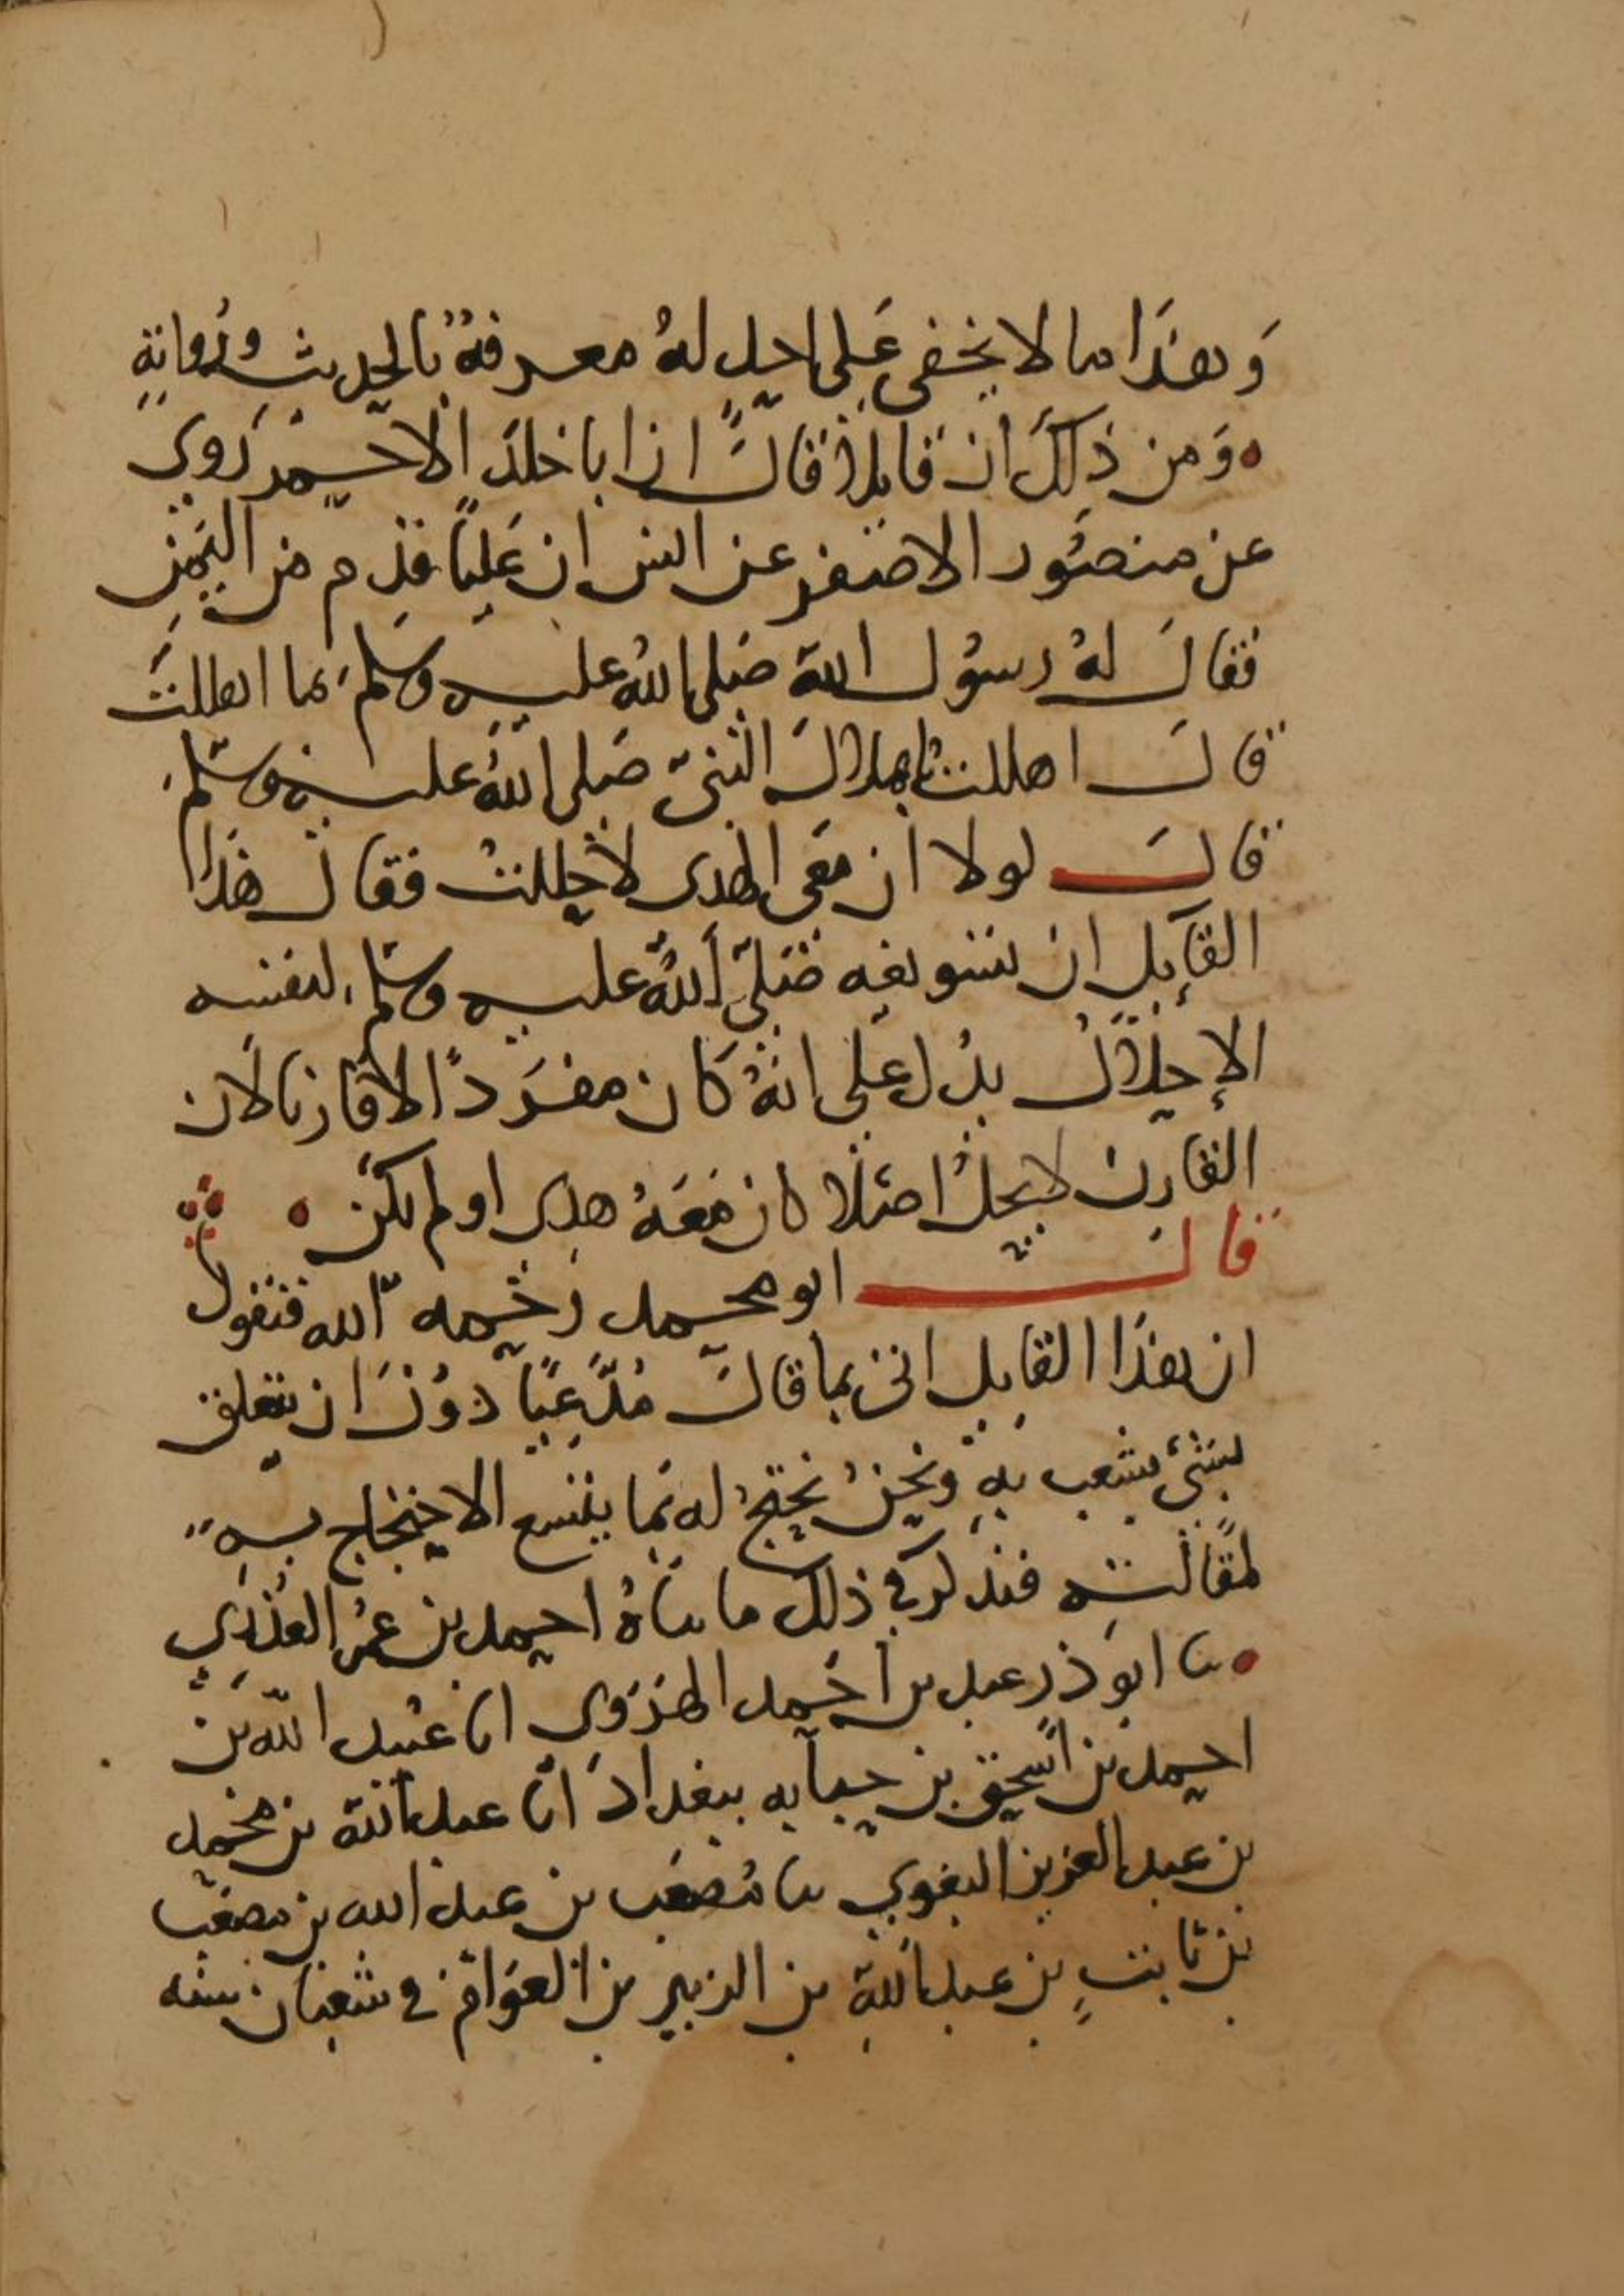 وَهذَا ما لا يخفى عَلى احدٍ لهُ معرفةٌ بالحديث ورُواتهِ
وَمن ذلكَ ان قايلاً قالَ ان ابا خلدَ الاحمر رَوى
عن منصُور الاصفر عن انس ان عَليًا قدم من اليَمنِ
فقالَ لهُ رسوُل الله صَلى اللهُ عليه وسَلم بما اهللتَ
قالَ اهللت باهلال النبيّ صَلى اللهُ عليه وسَلم
قالَ لولا ان مَعى الهدى لاحللتُ فقال هَذا
القآيل ان تسويغه صَلىّ اللهُ عليه وسَلم لنفسه
الإحلالُ يدُل عَلى انهُ كان مفرَدًا لا قارنا لان
القارن لا يحلُ اصلا كان مَعَهُ هدى او لم يكن
قال ابو محمد رَحمه الله فنقول
ان هذَا القايل اتى بما قالَ مُدّعيًا دوُنَ ان يتعلق
بشئ يشغب بهِ ونحنُ نحتجُ له بما يتسع الاحتجاج بهِ
لمقَالته فنذكر في ذلك ما ناهُ احمد بن عمُر العذري
نا ابو ذر عبد بن أحَمد الهرَوى انا عبُيد الله بن
احمد بن اسحق بن حبابه ببغدادَ انا عبد الله بن محمد
بن عبد العزيز البغوي نا مُصعَب بن عبد الله بن مصعَب
بن ثابتٍ بن عبد اللهِ بن الزبير بن العوَام في شعبان سنه